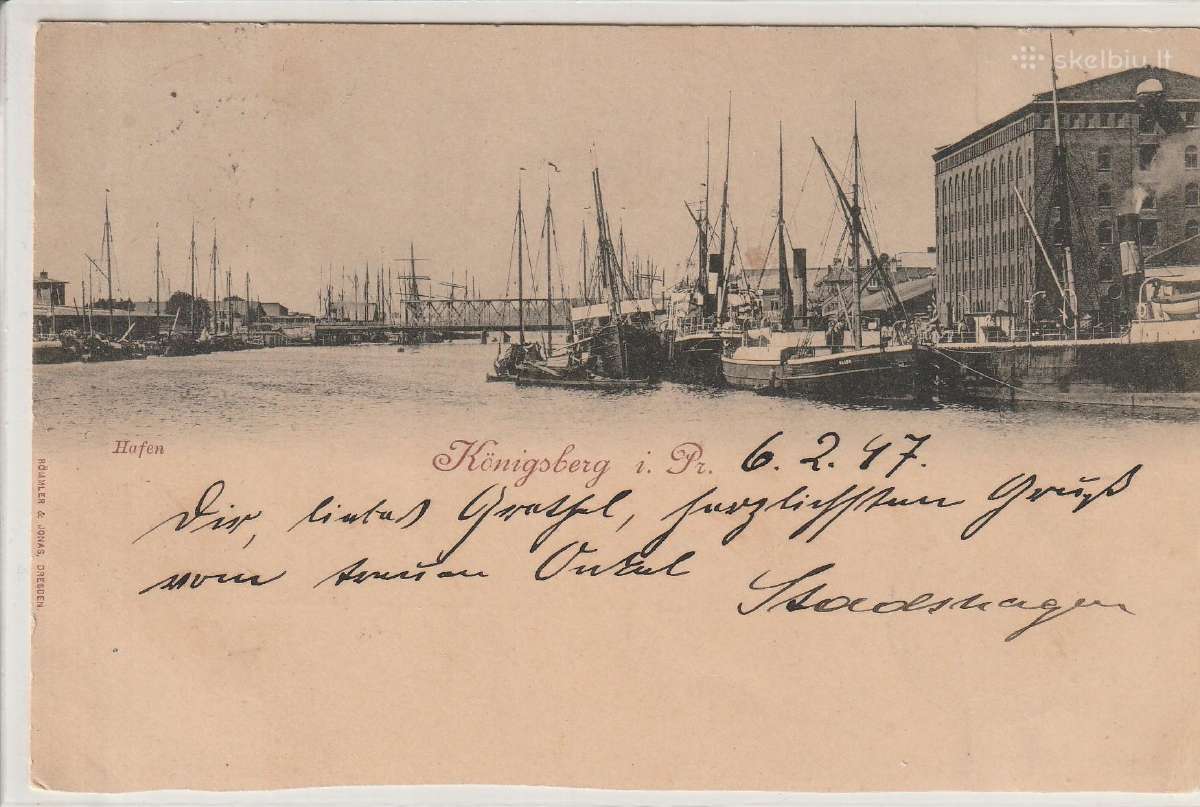 skelbiu.lt
Hafen
Königsberg i. Pr. 6. 2. 97.
RÖMMLER & JONAS, DRESDEN.
Dir, liebes Grethel, herzlichsten Gruß
vom treuen Onkel